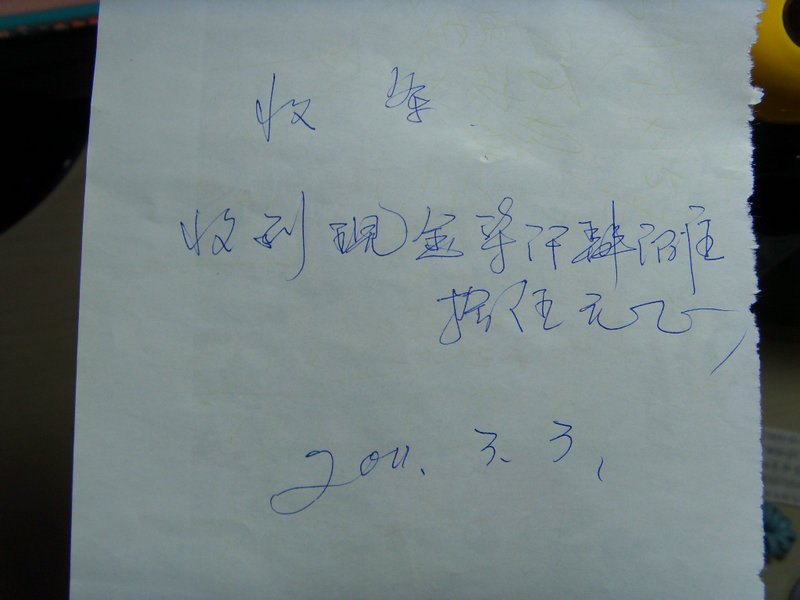 收条
收到现金叁仟肆佰
拾伍元正,
2011.3.3.